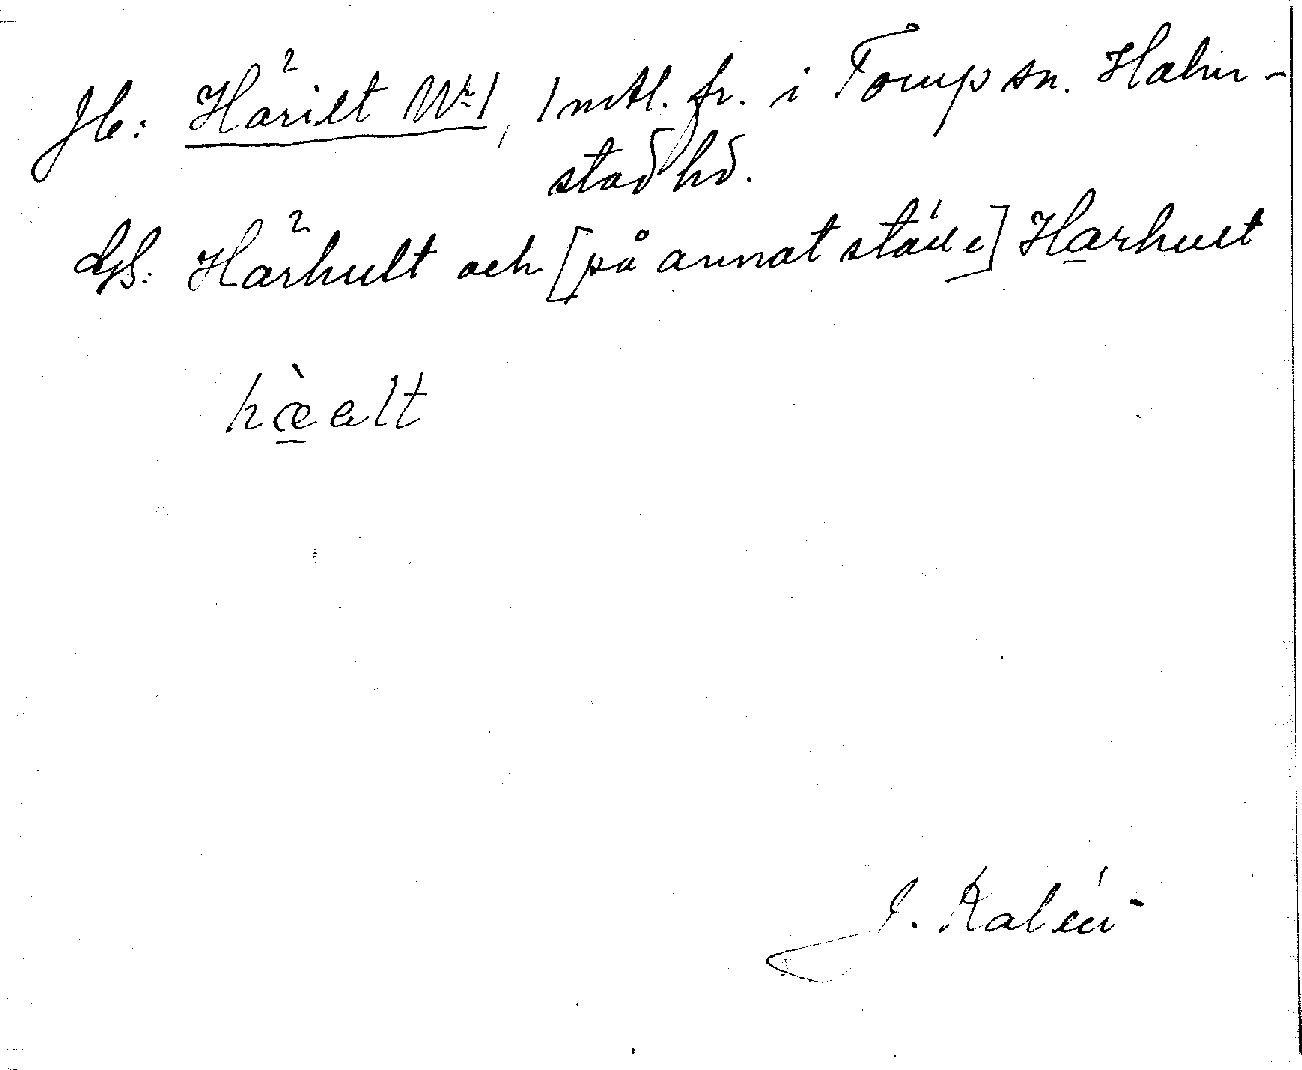 Jb: Härilt Nr 1, 1 mtl. fr. i Torup sn. Halm-
stad hd.
GS: Härhult och [på annat ställe] Harhult
hæ̀alt
J. Kalén